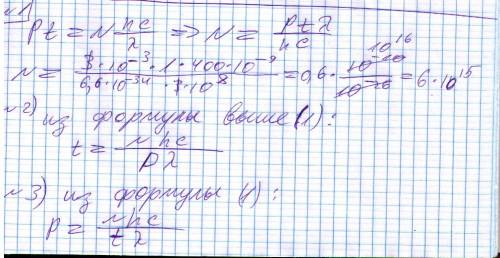 №1
Pt = N hc/λ => N = Ptλ/hc
N = 3·10⁻³·1·400·10⁻⁹ / 6,6·10⁻³⁴·3·10⁸ = 0,6· 10¹⁶ 10⁻¹⁰/10⁻²⁶ = 6·10¹⁵
№2) из формулы выше (1):
t = Nhc/Pλ
№3) из формулы (1):
P = Nhc/tλ